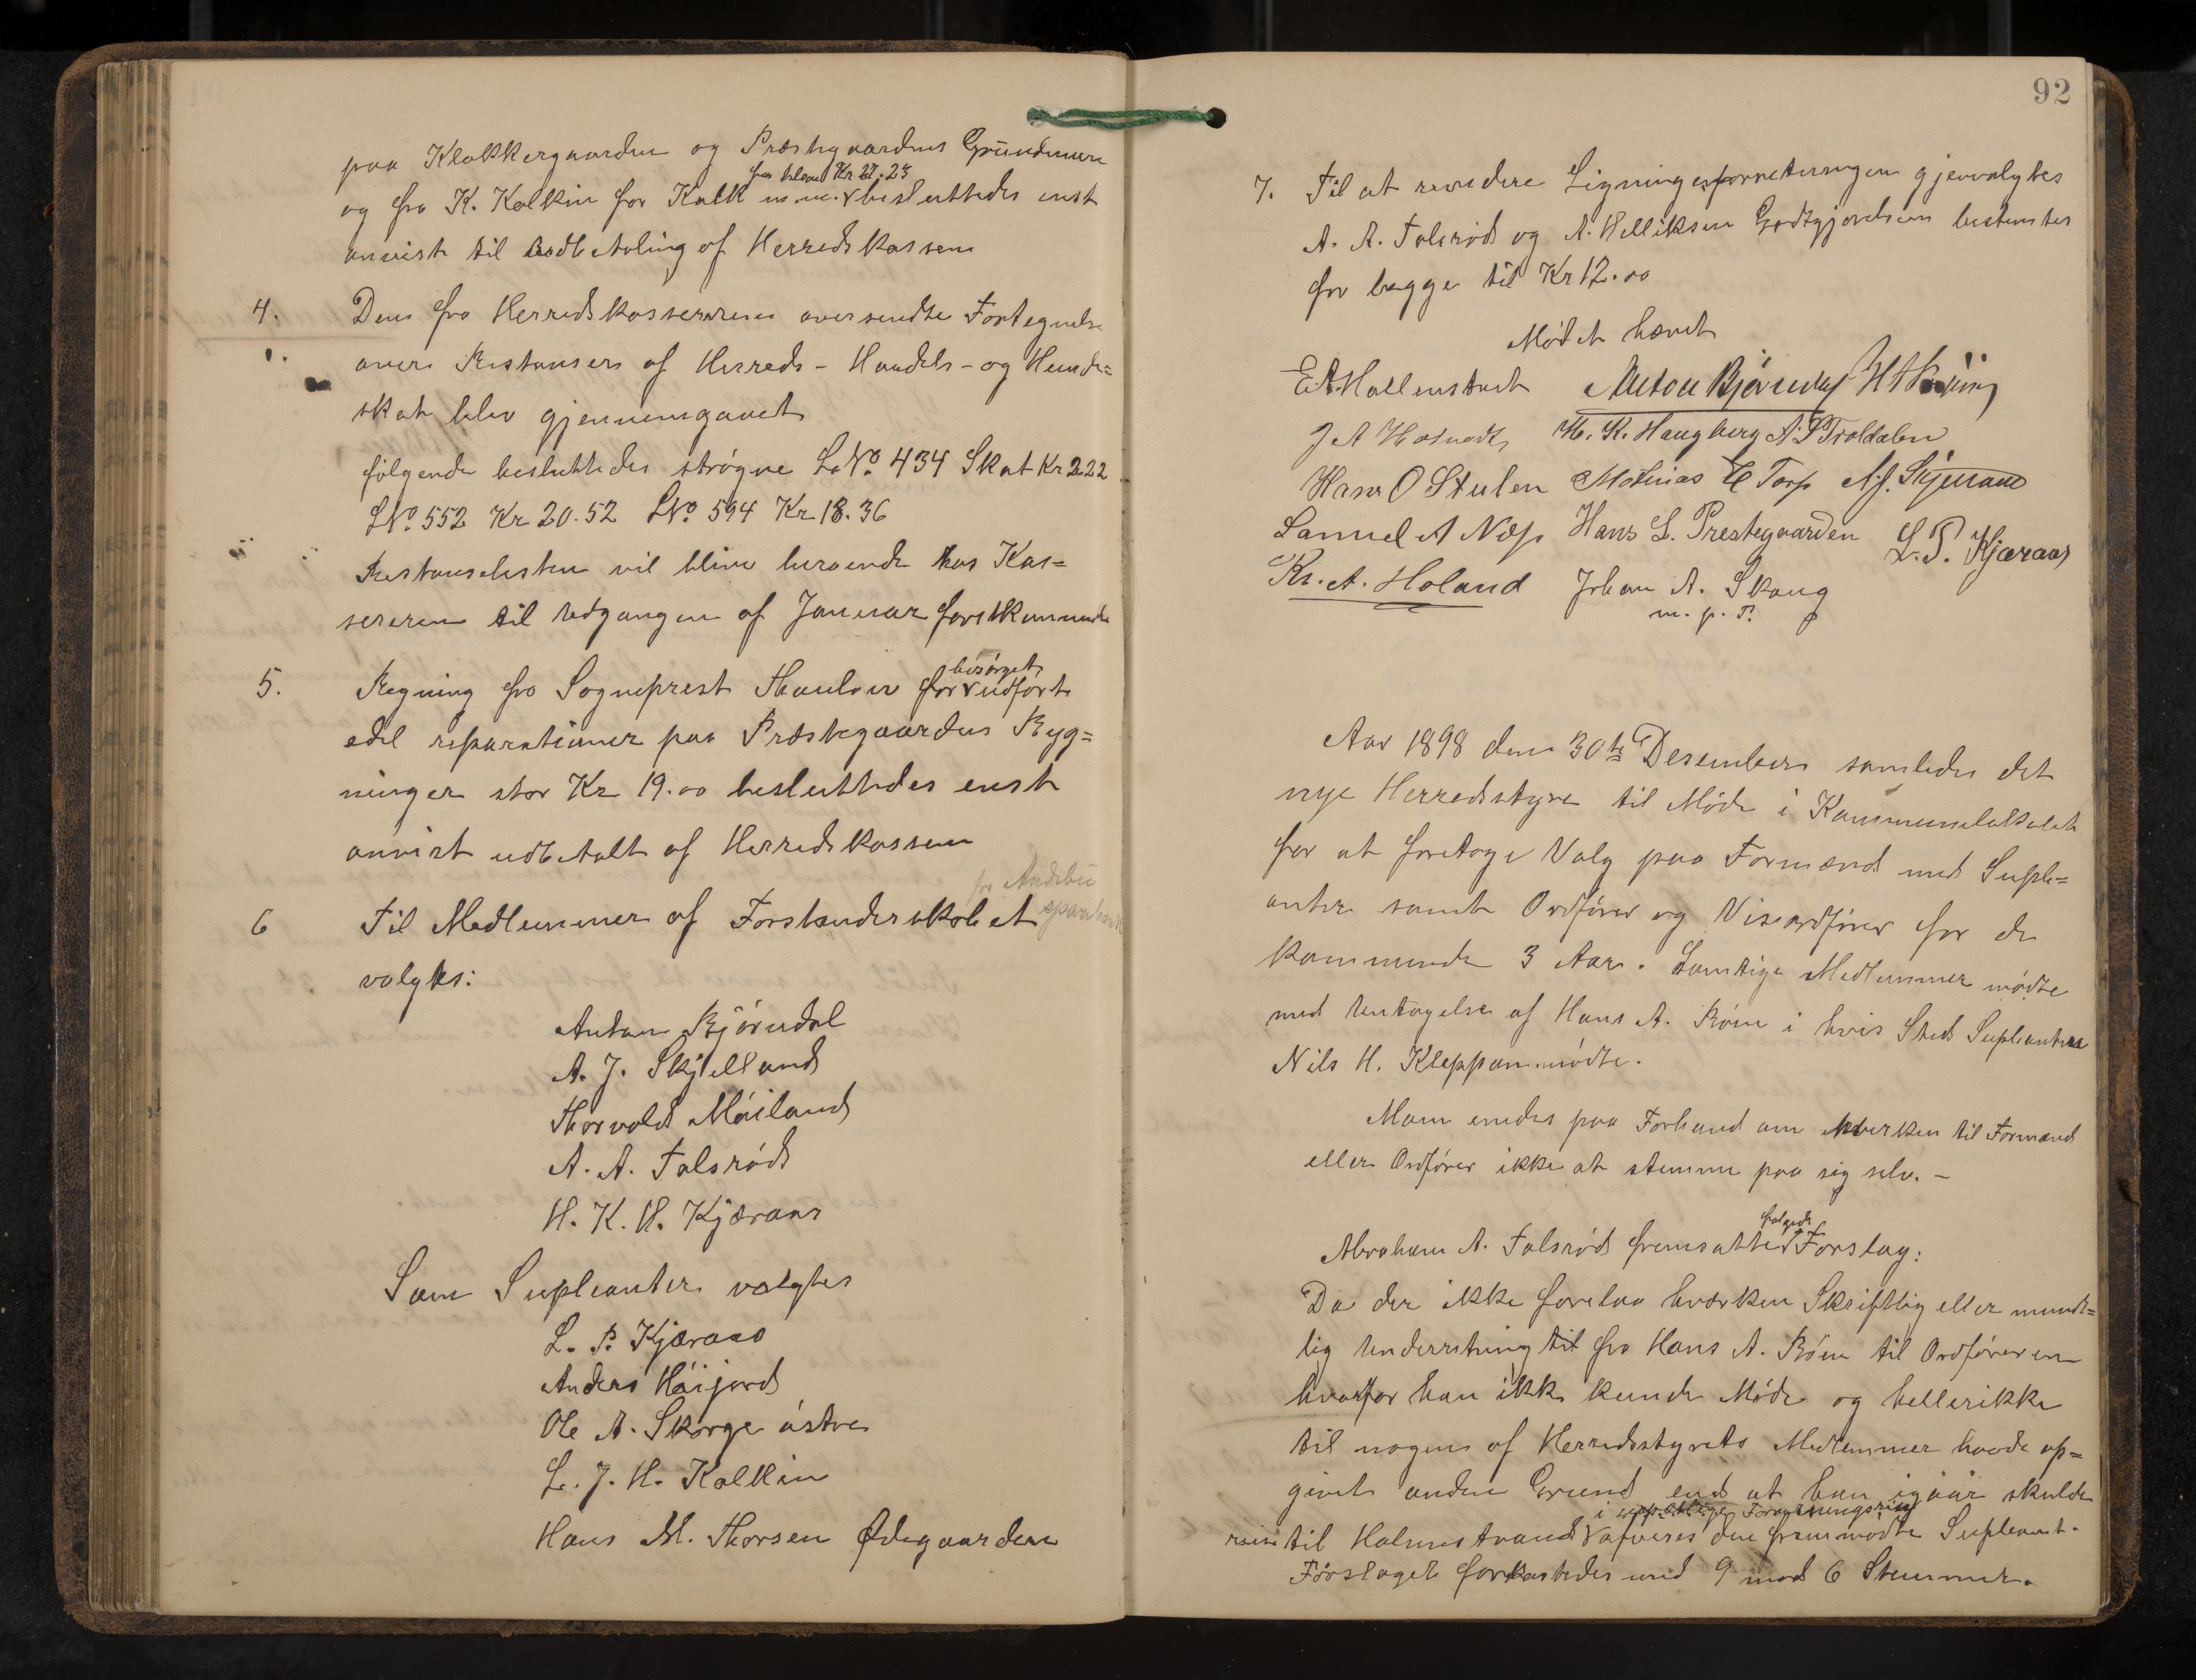 paa Klokkergaarden og Præstegaardens Grundmure
og fra K. Kolkin for Kalk m.m. besluttedes enst
for blank Kr 27.23
anvist til Undbetaling af Herredskassen
4. Den fra Herredskassereren oversendte Fortegnelse
over Restanser af Herreds- Handels- og Hunde=
skat blev gjennemgaaet
følgende besluttedes strøgne L.No. 434 Skat Kr 2.22
LNo. 552 Kr 20.52 LNo. 594 Kr 18.36
Restanselisten vil blive beroende hos Kas=
sereren til Udgangen af Januar førstkommende
5. Regning fra Sogneprest Thaulow for besørget udført
edel reparationer paa Præstegaardens Byg=
ninger stor Kr 19.00 besluttedes enst
anvist udbetalt af Herredskassen
6 Til Medlemmer af Forstanderskabet for Andebu sparebank
valgtes:
Anton Bjørndal
A. J. Skjelland
Thorvald Møiland
A. A. Falsrød
H. K. H. Kjæraas
Som Supleanter valgtes
L. P. Kjæraas
Anders Høijord
Ole A. Skorge østre
L. J. H. Kolkin
Hans M. Thorsen Ødegaarden
92
7. Til at revidere Ligningsforretningen gjenvalgtes
A. A. Falsrød og A. Helliksen Godtgjørelsen bestemtes
for begge til Kr 12.00
Mødet hævet
E A Hallenstvedt Anton Bjørndal
H. K. Haugberg A. P Troldalen
Hans O Stulen Mathias H Torp A. J. Skjelland
Samuel A Næss Hans L. Prestegaarden L. P. Kjæraas
Kr. A. Holand Johan A. Skaug
m. p. P.
Aar 1898 den 30te Desember samledes det
nye Herredsstyre til Møde i Kommunelokalet
for at foretage Valg paa Formænd med Suple=
anter samt Ordfører og Viseordfører for de
kommende 3 Aar. Samtlige Medlemmer mødte
med Undtagelse af Hans A. Bøen i hvis Sted Supleanten
Nils H. Kleppan mødte.
Man enedes paa Forhand om hverken til Formand
eller Ordfører ikke at stemme paa sig selv. –
Abraham A. Falsrød fremsatte følgende Forslag:
Da der ikke forelaa hværken Skriftlig eller mundt=
lig Underretning til fra Hans A. Bøen til Ordføreren
hvorfor han ikke kunde Møde og hellerikke
til nogen af Herredsstyrets Medlemmer havde op=
givet anden Grund end at han igaar skulde
reise til Holmestrand i Forretningsreise afvises den fremmødte Supleant.
Forslaget forkastedes med 9 mod 6 Stemmer.